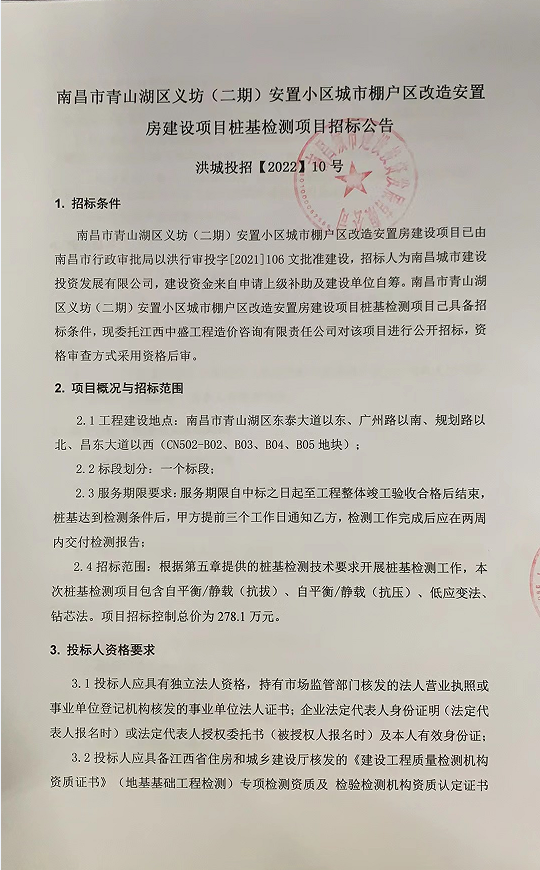 南昌市青山湖区义坊（二期）安置小区城市棚户区改造安置
房建设项目桩基检测项目招标公告
洪城投招【2022】10号
1. 招标条件
南昌市青山湖区义坊（二期）安置小区城市棚户区改造安置房建设项目已由
南昌市行政审批局以洪行审投字[2021]106 文批准建设，招标人为南昌城市建设
投资发展有限公司，建设资金来自申请上级补助及建设单位自筹。南昌市青山湖
区义坊（二期）安置小区城市棚户区改造安置房建设项目桩基检测项目已具备招
标条件，现委托江西中盛工程造价咨询有限责任公司对该项目进行公开招标，资
格审查方式采用资格后审。
2. 项目概况与招标范围
2.1 工程建设地点：南昌市青山湖区东泰大道以东、广州路以南、规划路以
北、昌东大道以西（CN502-B02、B03、B04、B05 地块）；
2.2 标段划分：一个标段；
2.3 服务期限要求：服务期限自中标之日起至工程整体竣工验收合格后结束，
桩基达到检测条件后，甲方提前三个工作日通知乙方，检测工作完成后应在两周
内交付检测报告；
2.4 招标范围：根据第五章提供的桩基检测技术要求开展桩基检测工作，本
次桩基检测项目包含自平衡/静载（抗拔）、自平衡/静载（抗压）、低应变法、
钻芯法。项目招标控制总价为 278.1 万元。
3. 投标人资格要求
3.1 投标人应具有独立法人资格，持有市场监管部门核发的法人营业执照或
事业单位登记机构核发的事业单位法人证书；企业法定代表人身份证明（法定代
表人报名时）或法定代表人授权委托书（被授权人报名时）及本人有效身份证；
3.2 投标人应具备江西省住房和城乡建设厅核发的《建设工程质量检测机构
资质证书》（地基基础工程检测）专项检测资质及 检验检测机构资质认定证书